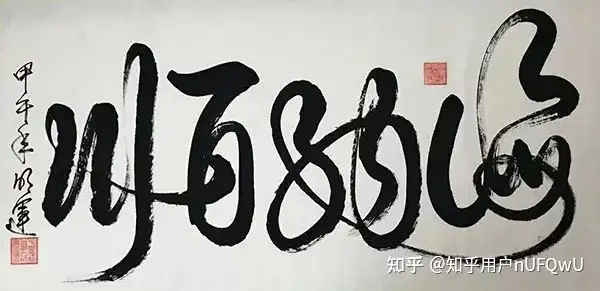 海纳百川
甲午年明運
知乎 @知乎用户nUFQwU